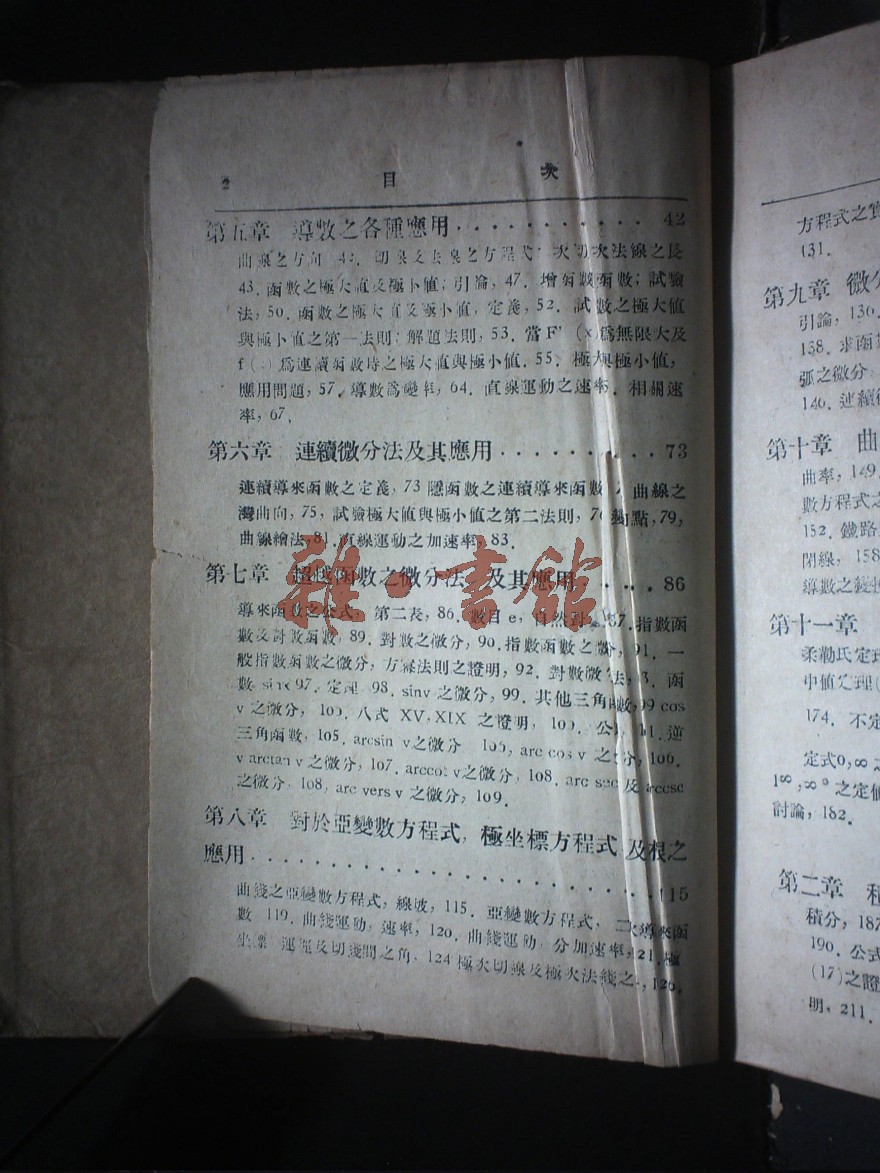 2 目 次
第五章 導數之各種應用 . . . . . . . . . . . 42
曲線之方向 切線及法線之方程式 次切次法線之長
43. 函數之極大值及極小值; 引論, 47. 增函數函數; 試驗
法, 50. 函數之極大值及極小值, 定義, 52. 試數之極大值
與極小值之第一法則; 解題法則, 53. 當F' (x)爲無限大及
f 爲連續函數時之極大值與極小值. 55. 極大與極小值,
應用問題, 57. 導數爲變率, 64. 直線運動之速率. 相關速
率, 67.
第六章 連續微分法及其應用 . . . . . . . . . . 73
連續導來函數之定義, 73 隱函數之連續導來函數 曲線之
灣曲向, 75, 試驗極大值與極小值之第二法則, 點, 79,
曲線繪法, 81. 直線運動之加速率, 83.
雜·書館
第七章 超越函數之微分法 及其應用 . . . . 86
導來函數之公式, 第二表, 86. 數目 e, 自然對 87. 指數函
數及對數函數, 89. 對數之微分, 90. 指數函數之微分, 91. 一
般指數函數之微分, 方冪法則之證明, 92. 對數微 法, 函
數 sinx 97. 定理 98. sinv 之微分, 99. 其他三角函數, 99 cos
v 之微分, 100. 八式 XV, XIX 之證明, 100. 公 逆
三角函數, 105. arcsin v之微分 105, arc cos v 之 分, 106.
v arctan v 之微分, 107. arccot v之微分, 108. arc sec 及 arccsc
之微分, 108, arc vers v 之微分, 109.
第八章 對於亞變數方程式, 極坐標方程式 及根之
應用 . . . . . . . . . . . . . . . . . 115
曲綫之亞變數方程式, 線坡, 115. 亞變數方程式, 二次導來函
數 119. 曲綫運動, 速率, 120. 曲綫運動, 分加速率, 121. 極
坐標 及切綫間之角, 124 極次切線及極次法綫之 , 126.
方程式之
131.
第九章 微分
引論, 136.
138. 求函
弧之微分
146. 連續
第十章 曲
曲率, 149.
數方程式之
152. 鐵路
閉線, 158
導數之
第十一章
柔勒氏定理
中值定理
174. 不定
定式0, ∞ 之
1^∞, ∞° 之定值
討論, 182.
第二章 積
積分, 187
190. 公式
(17)之證
明, 211.